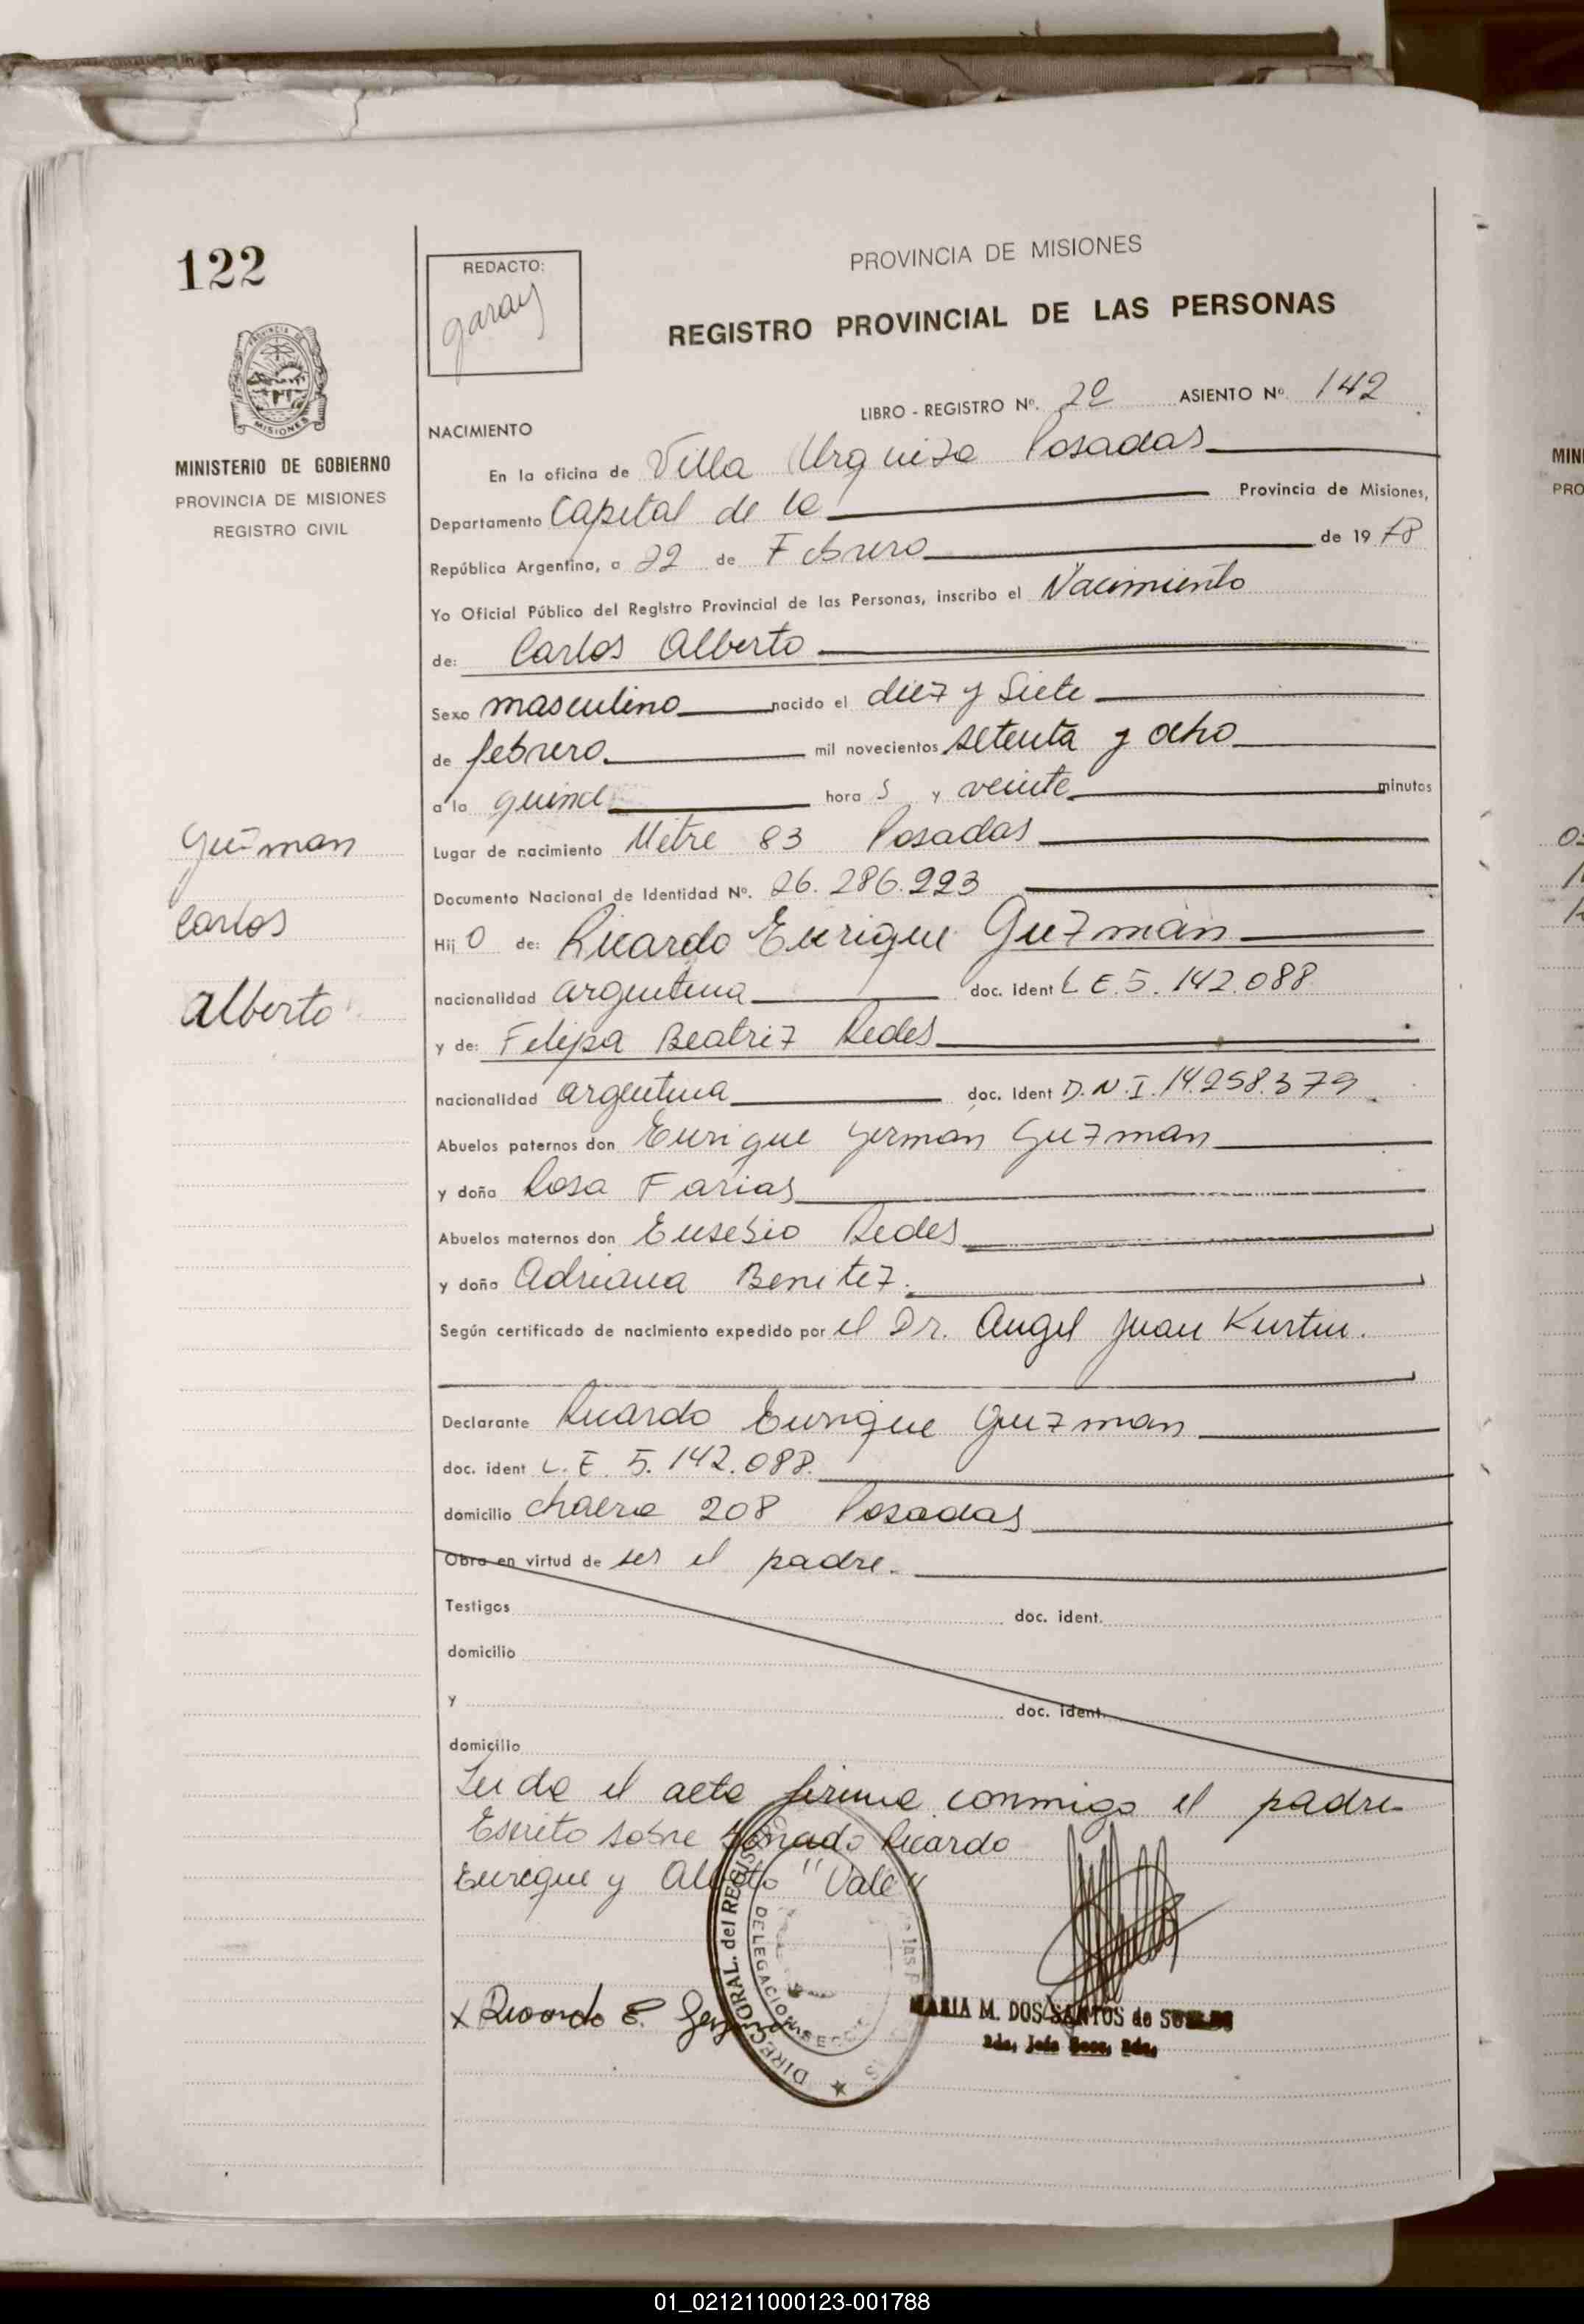 122
REDACTO:
garay
PROVINCIA DE MISIONES
REGISTRO PROVINCIAL DE LAS PERSONAS
PROVINCIA
MISIONES
MINISTERIO DE GOBIERNO
PROVINCIA DE MISIONES
REGISTRO CIVIL
LIBRO - REGISTRO Nº. 22 ASIENTO Nº. 142
NACIMIENTO
En la oficina de Villa Urquiza Posadas
Departamento Capital de la Provincia de Misiones,
República Argentina, a 22 de Febrero de 1978
Yo Oficial Público del Registro Provincial de las Personas, inscribo el Nacimiento
de: Carlos Alberto
Sexo masculino nacido el diez y Siete
de febrero mil novecientos setenta y ocho
a la quince hora s y veinte minutos
Lugar de nacimiento Mitre 83 Posadas
Documento Nacional de Identidad Nº. 26.286.223
Hijo de: Ricardo Enrique Guzmán
nacionalidad argentina doc. ident L E. 5.142.088
y de: Felipa Beatriz Redes
nacionalidad argentina doc. ident D.N.I. 14.258.379
Abuelos paternos don Enrique german Guzman
y doña Rosa Farias
Abuelos maternos don Eusebio Redes
y doña Adriana Benitez.
Según certificado de nacimiento expedido por el Dr. Angel Juan
Declarante Ricardo Enrique Guzman
doc. ident L. E. 5.142.088.
domicilio chacra 208 Posadas
Obra en virtud de ser el padre.
Testigos doc. ident.
domicilio
y doc. ident.
domicilio
Leida el acta firma conmigo el padre
Escrito sobre Ricardo
Enrique y Alberto "Vale"
Carlos
Alberto
x Ricardo E.
DIRECCION GRAL. del REGIS
DELEGACION
MARIA M. DOS SANTOS de
MIN
PRO
01_021211000123-001788